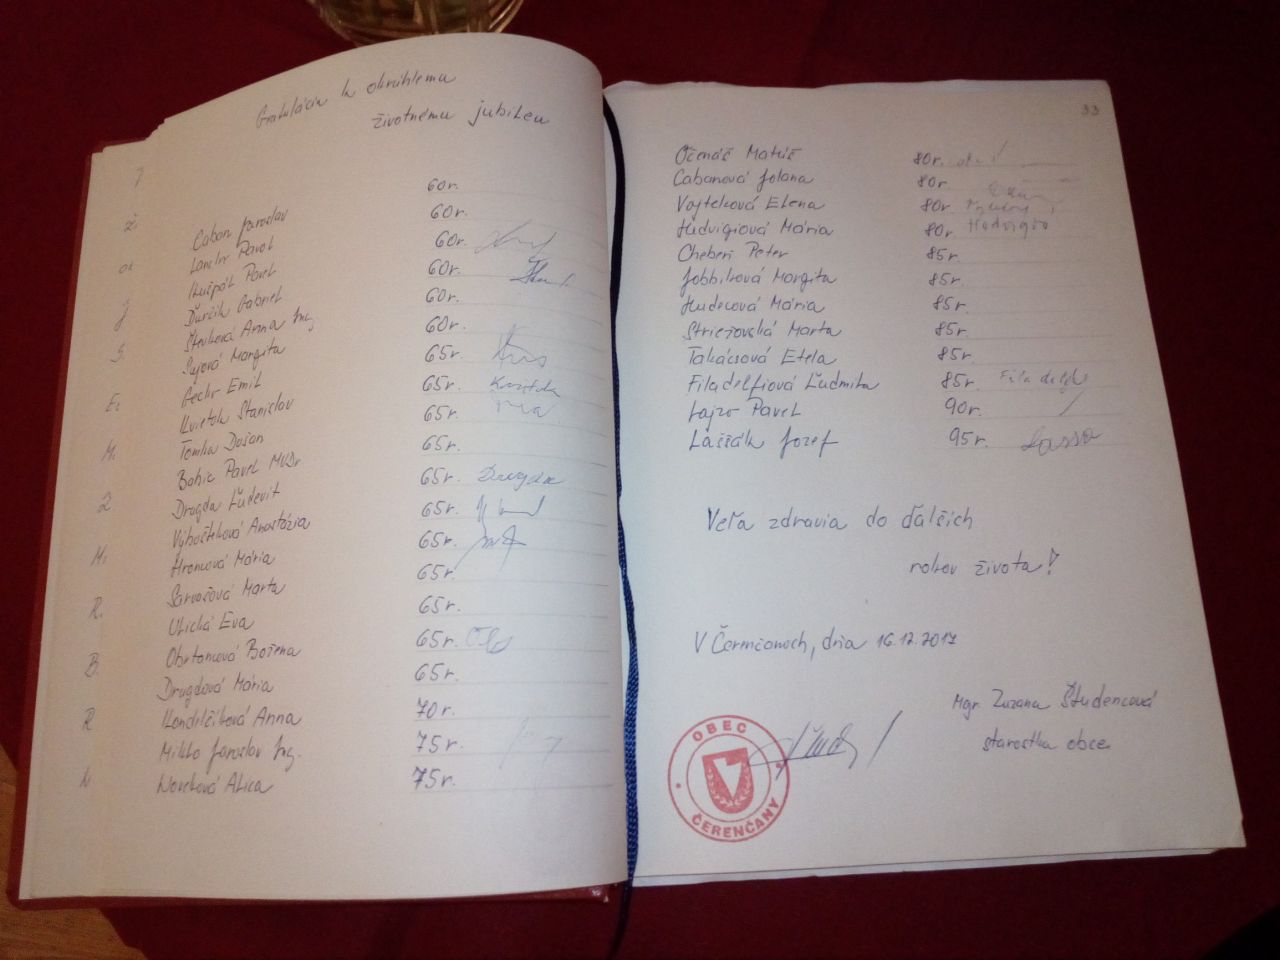 Gratulácia k okrúhlemu
životnému jubileu
Caban Jaroslav 60r.
Pavol 60r.
Pavel 60r.
Ďurčík Gabriel 60r.
Števková Anna Ing. 60r.
Sajová Margita 60r.
Emil 65r.
Kvietok Stanislav 65r.
Tomka Dušan 65r.
Babic Pavel MVDr 65r.
Dragda Ľudevít 65r. Dragda
Výbošteková Anastázia 65r.
Hroncová Mária 65r.
Sarvašová Marta 65r.
Ulická Eva 65r.
Obrtancová Božena 65r.
Dragdová Mária 65r.
Kondrlčíková Anna 70r.
Mikko Jaroslav Ing. 75r.
Nováková Alica 75r.
33
Očenáš Matúš 80r.
Cabanová Jolana 80r.
Vojteková Elena 80r.
Hudvigiová Mária 80r.
Cheben Peter 85r.
Jobbiková Margita 85r.
Hudecová Mária 85r.
Striežovská Marta 85r.
Takácsová Etela 85r.
Filadelfiová Ľudmila 85r.
Lajzo Pavel 90r.
Laššák Jozef 95r.
Veľa zdravia do ďalších
rokov života!
V Čerenčanoch, dňa 16.12.2017
Mgr. Zuzana Študencová
starostka obce
OBEC
ČERENČANY